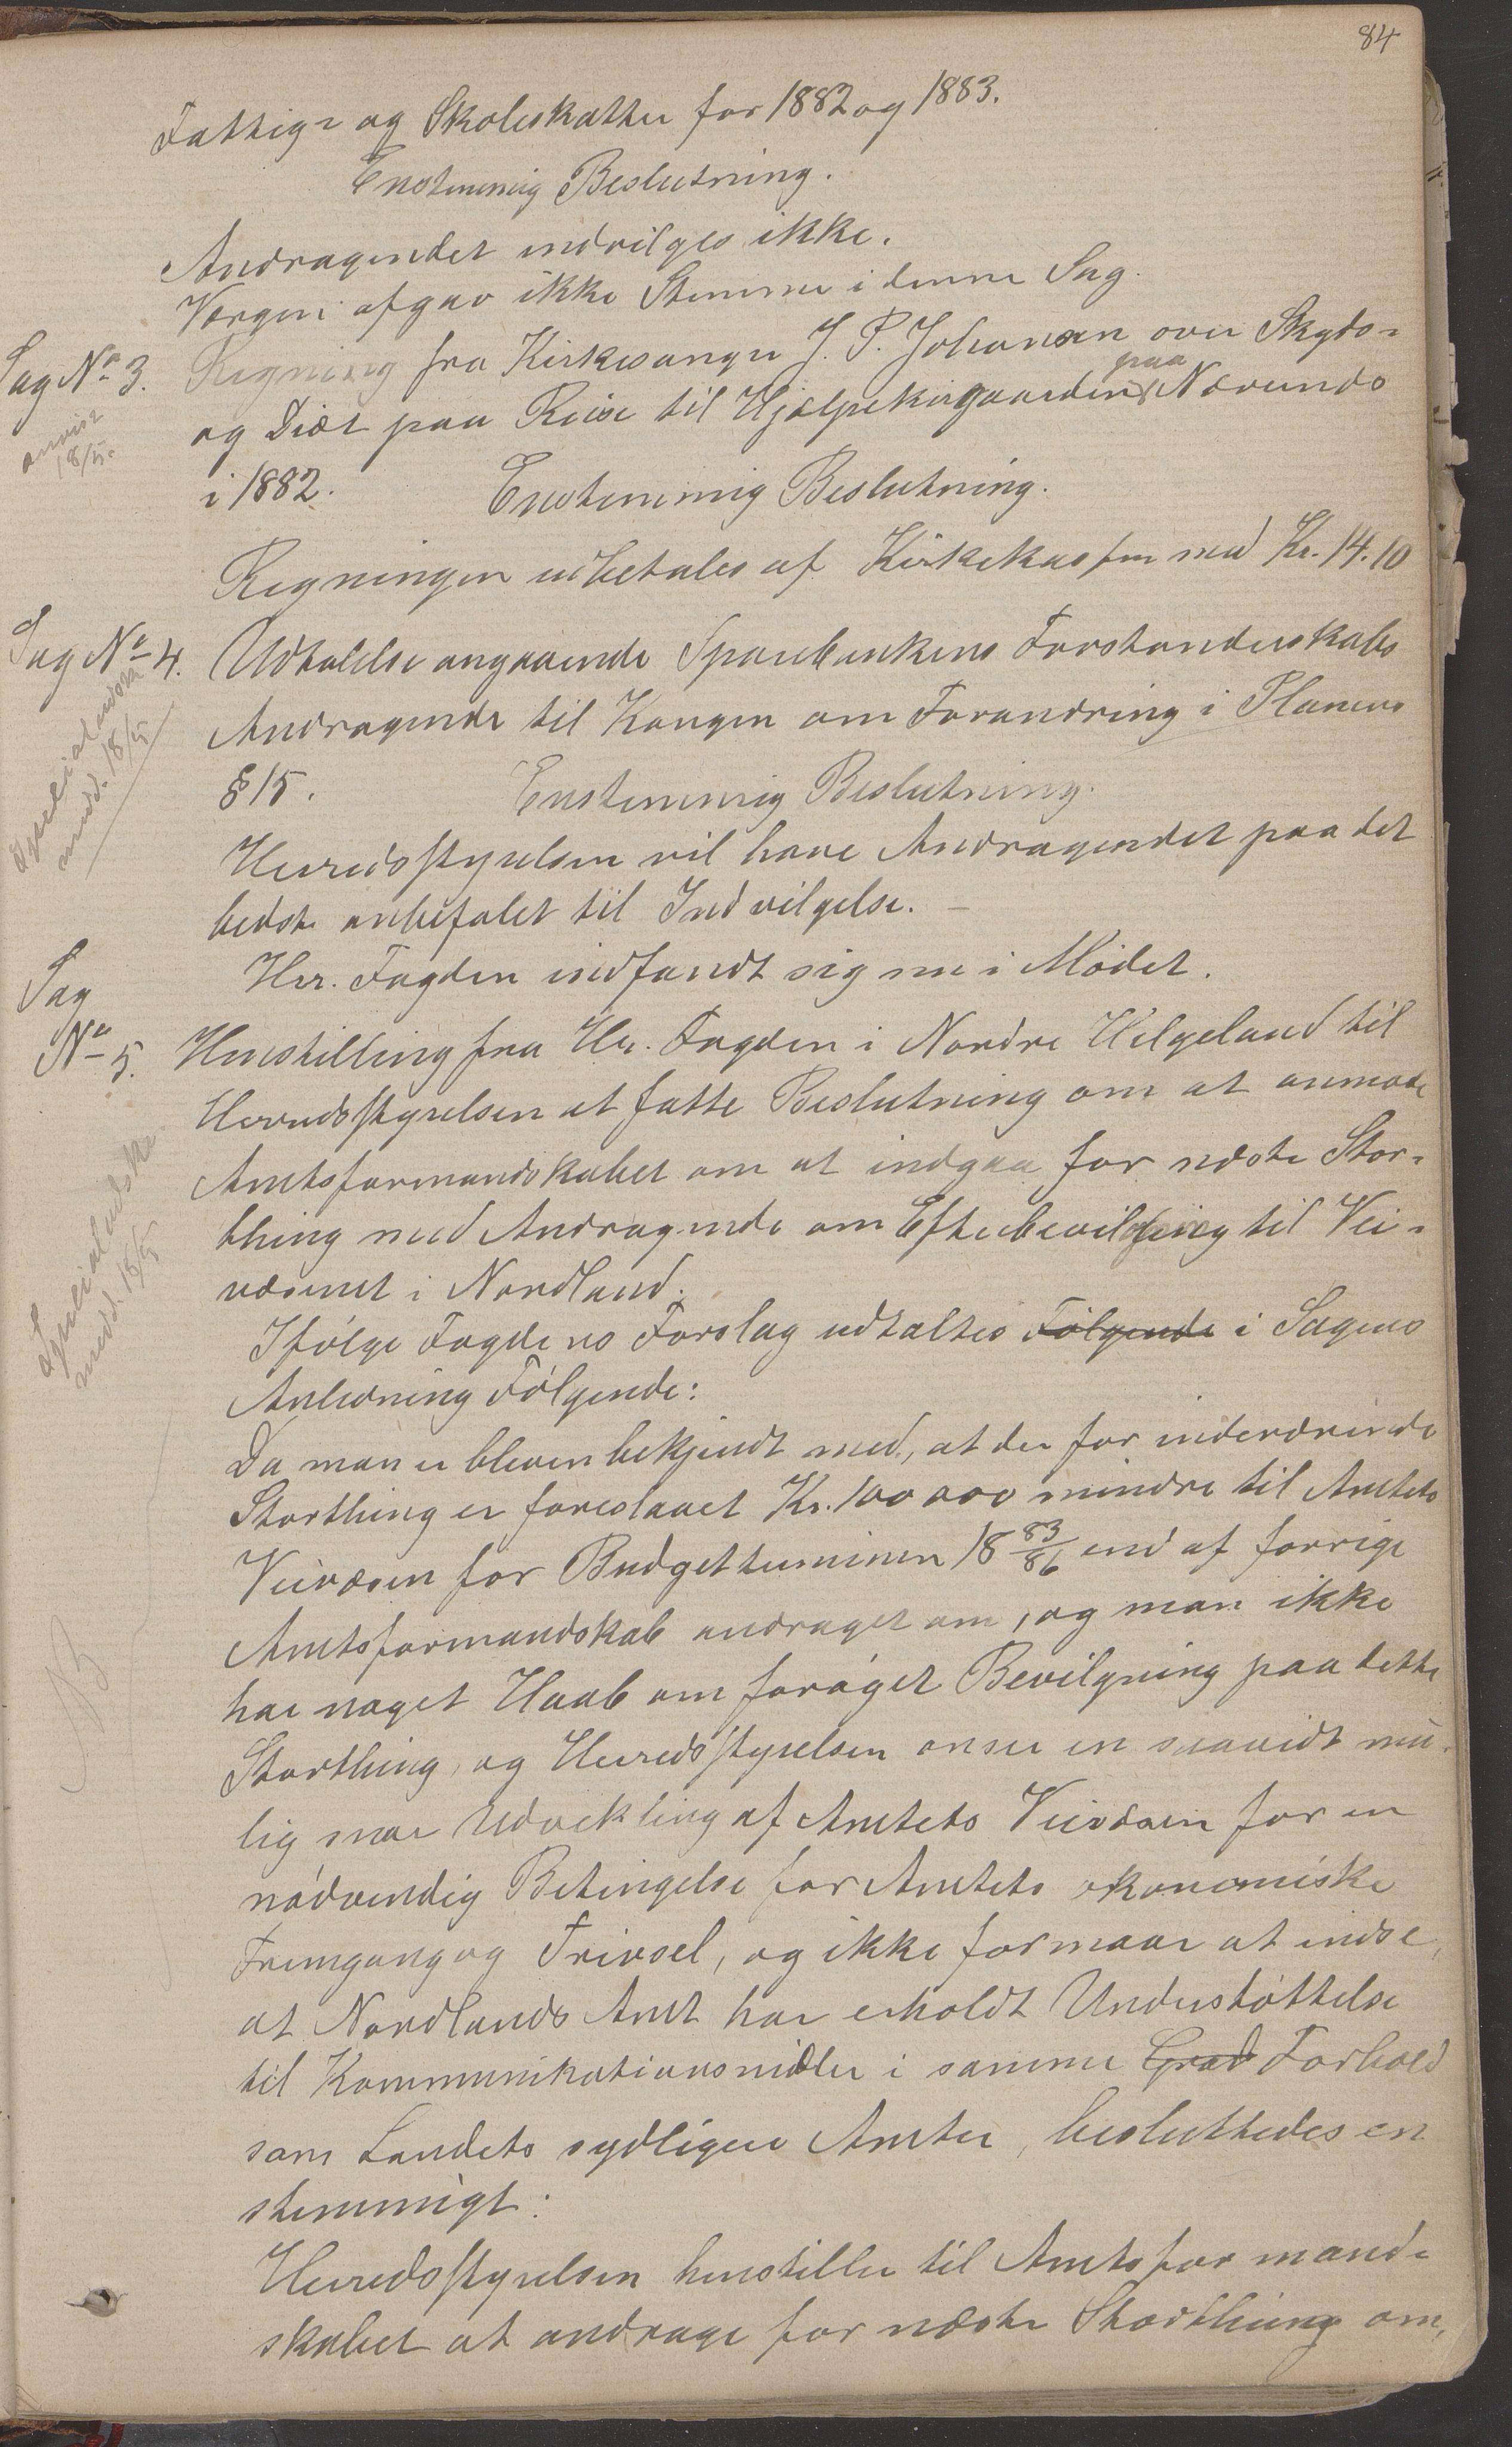 84
Fattig- og Skoleskatter for 1882 og 1883.
Enstemmig Beslutning.
Andragendet indvilges ikke.
Vorgen afgav ikke Stemme i denne Sag.
Sag No 3. Regning fra Kirkesanger J. P. Johansen over Skyds-
anvist 18/5. og Diæt paa Reise til Hjælpekirkgaarden paa Nævernæs
i 1882. Enstemmig Beslutning.
Regningen udbetales af Kirkekassen med Kr. 14.10
Sag No 4. Udtalelse angaaende Sparebankens Forstanderskabs
Andragende til Kongen om Forandring i Planens
Specialudskr. medd. 18/5
§ 15. Enstemmig Beslutning.
Herredsstyrelsen vil have Andragendet paa det
bedste anbefalet til Indvilgelse. –
Hr. Fogden indfandt sig nu i Mødet.
Sag
No 5. Henstilling fra Hr. Fogden i Nordre Helgeland til
Herredsstyrelsen at fatte Beslutning om at anmode
Amtsformandskabet om at indgaa for næste Stor-
thing med Andragende om Efterbevilgning til Vei-
væsenet i Nordland.
Specialudskr. medd. 18/5
Ifølge Fogdens Forslag udtaltes Følgende i Sagens
Anledning Følgende:
Da man er bleven bekjendt med, at der for inderværende
Storthing er foreslaaet Kr. 100 000 mindre til Amtets
Veivæsen for Budgetterminen 18 83/86 end af forrige
Amtsformandskab andraget om, og man ikke
har noget Haab om forøget Bevilgning paa dette
Storthing, og Herredsstyrelsen anser en saavidt mu-
lig snar Udvikling af Amtets Veivæsen for en
nødvendig Betingelse for Amtets økonomiske
Fremgang og Trivsel, og ikke formaar at indse,
at Nordlands Amt har erholdt Understøttelse
til Kommunikationsmidler i samme Grad Forhold
som Landets sydligere Amter, besluttedes en
stemmigt:
Herredsstyrelsen henstiller til Amtsformand-
skabet at andrage for næste Storthing om,
NB